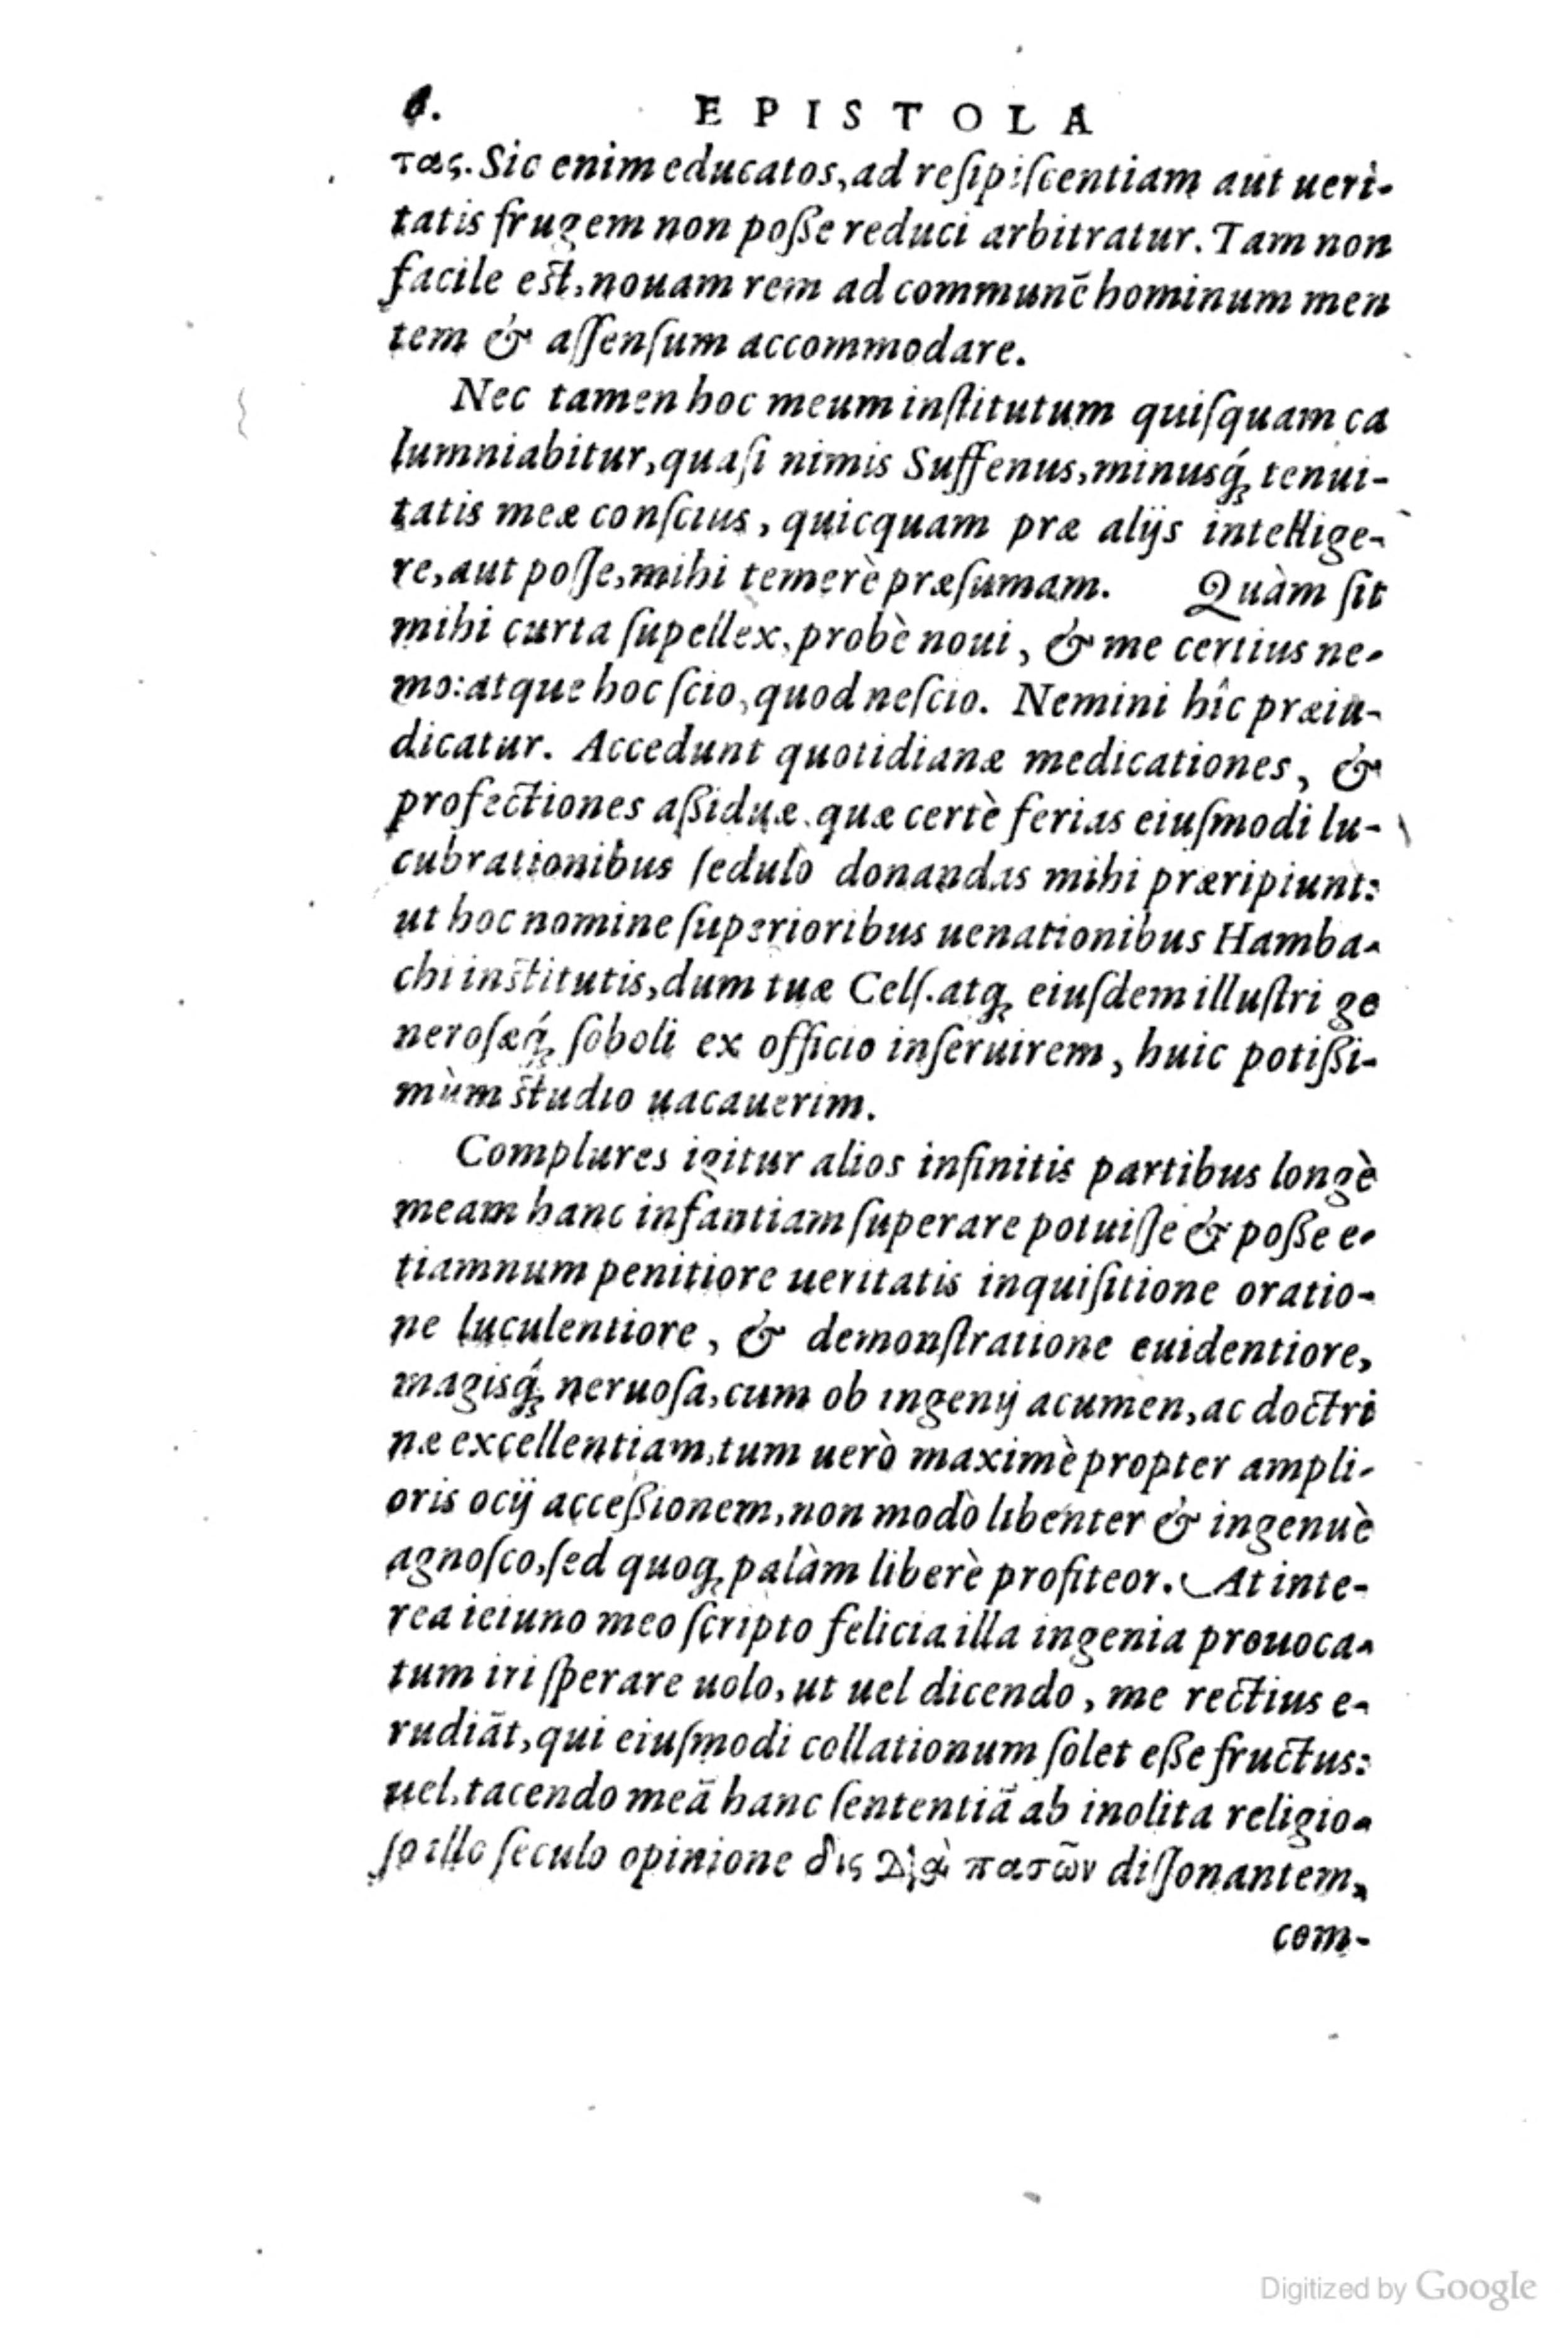 6. EPISTOLA
τας. Sic enim educatos, ad reſipiſcentiam aut ueri-
tatis frugem non poſſe reduci arbitratur. Tam non
facile eſt, nouam rem ad communẽ hominum men
tem & aſſenſum accommodare.
Nec tamen hoc meum inſtitutum quiſquam ca
lumniabitur, quaſi nimis Suffenus, minusq́; tenui-
tatis meæ conſcius, quicquam præ alijs intellige-
re, aut poſſe, mihi temerè præſumam. Quàm ſit
mihi curta ſupellex, probè noui, & me certius ne-
mo: atque hoc ſcio, quod neſcio. Nemini hîc præiu-
dicatur. Accedunt quotidianæ medicationes, &
profectiones aßiduæ. quæ certè ferias eiuſmodi lu-
cubrationibus ſedulò donandas mihi præripiunt:
ut hoc nomine ſuperioribus uenationibus Hamba-
chi inſtitutis, dum tuæ Celſ. atq; eiuſdem illuſtri ge
neroſæq́; ſoboli ex officio inſeruirem, huic potißi-
mùm ſtudio uacauerim.
Complures igitur alios infinitis partibus longè
meam hanc infantiam ſuperare potuiſſe & poße e-
tiamnum penitiore ueritatis inquiſitione oratio-
ne luculentiore, & demonſtratione euidentiore,
magisq́; neruoſa, cum ob ingenij acumen, ac doctri
næ excellentiam, tum uerò maximè propter ampli-
oris ocij acceßionem, non modò libenter & ingenuè
agnoſco, ſed quoq; palàm liberè profiteor. At inte-
rea ieiuno meo ſcripto felicia illa ingenia prouoca-
tum iri ſperare uolo, ut uel dicendo, me rectius e-
rudiãt, qui eiuſmodi collationum ſolet eße fructus:
uel, tacendo meã hanc ſententiã ab inolita religio-
ſo illo ſeculo opinione δις Διὰ πασῶν diſſonantem,
com-
Digitized by Google